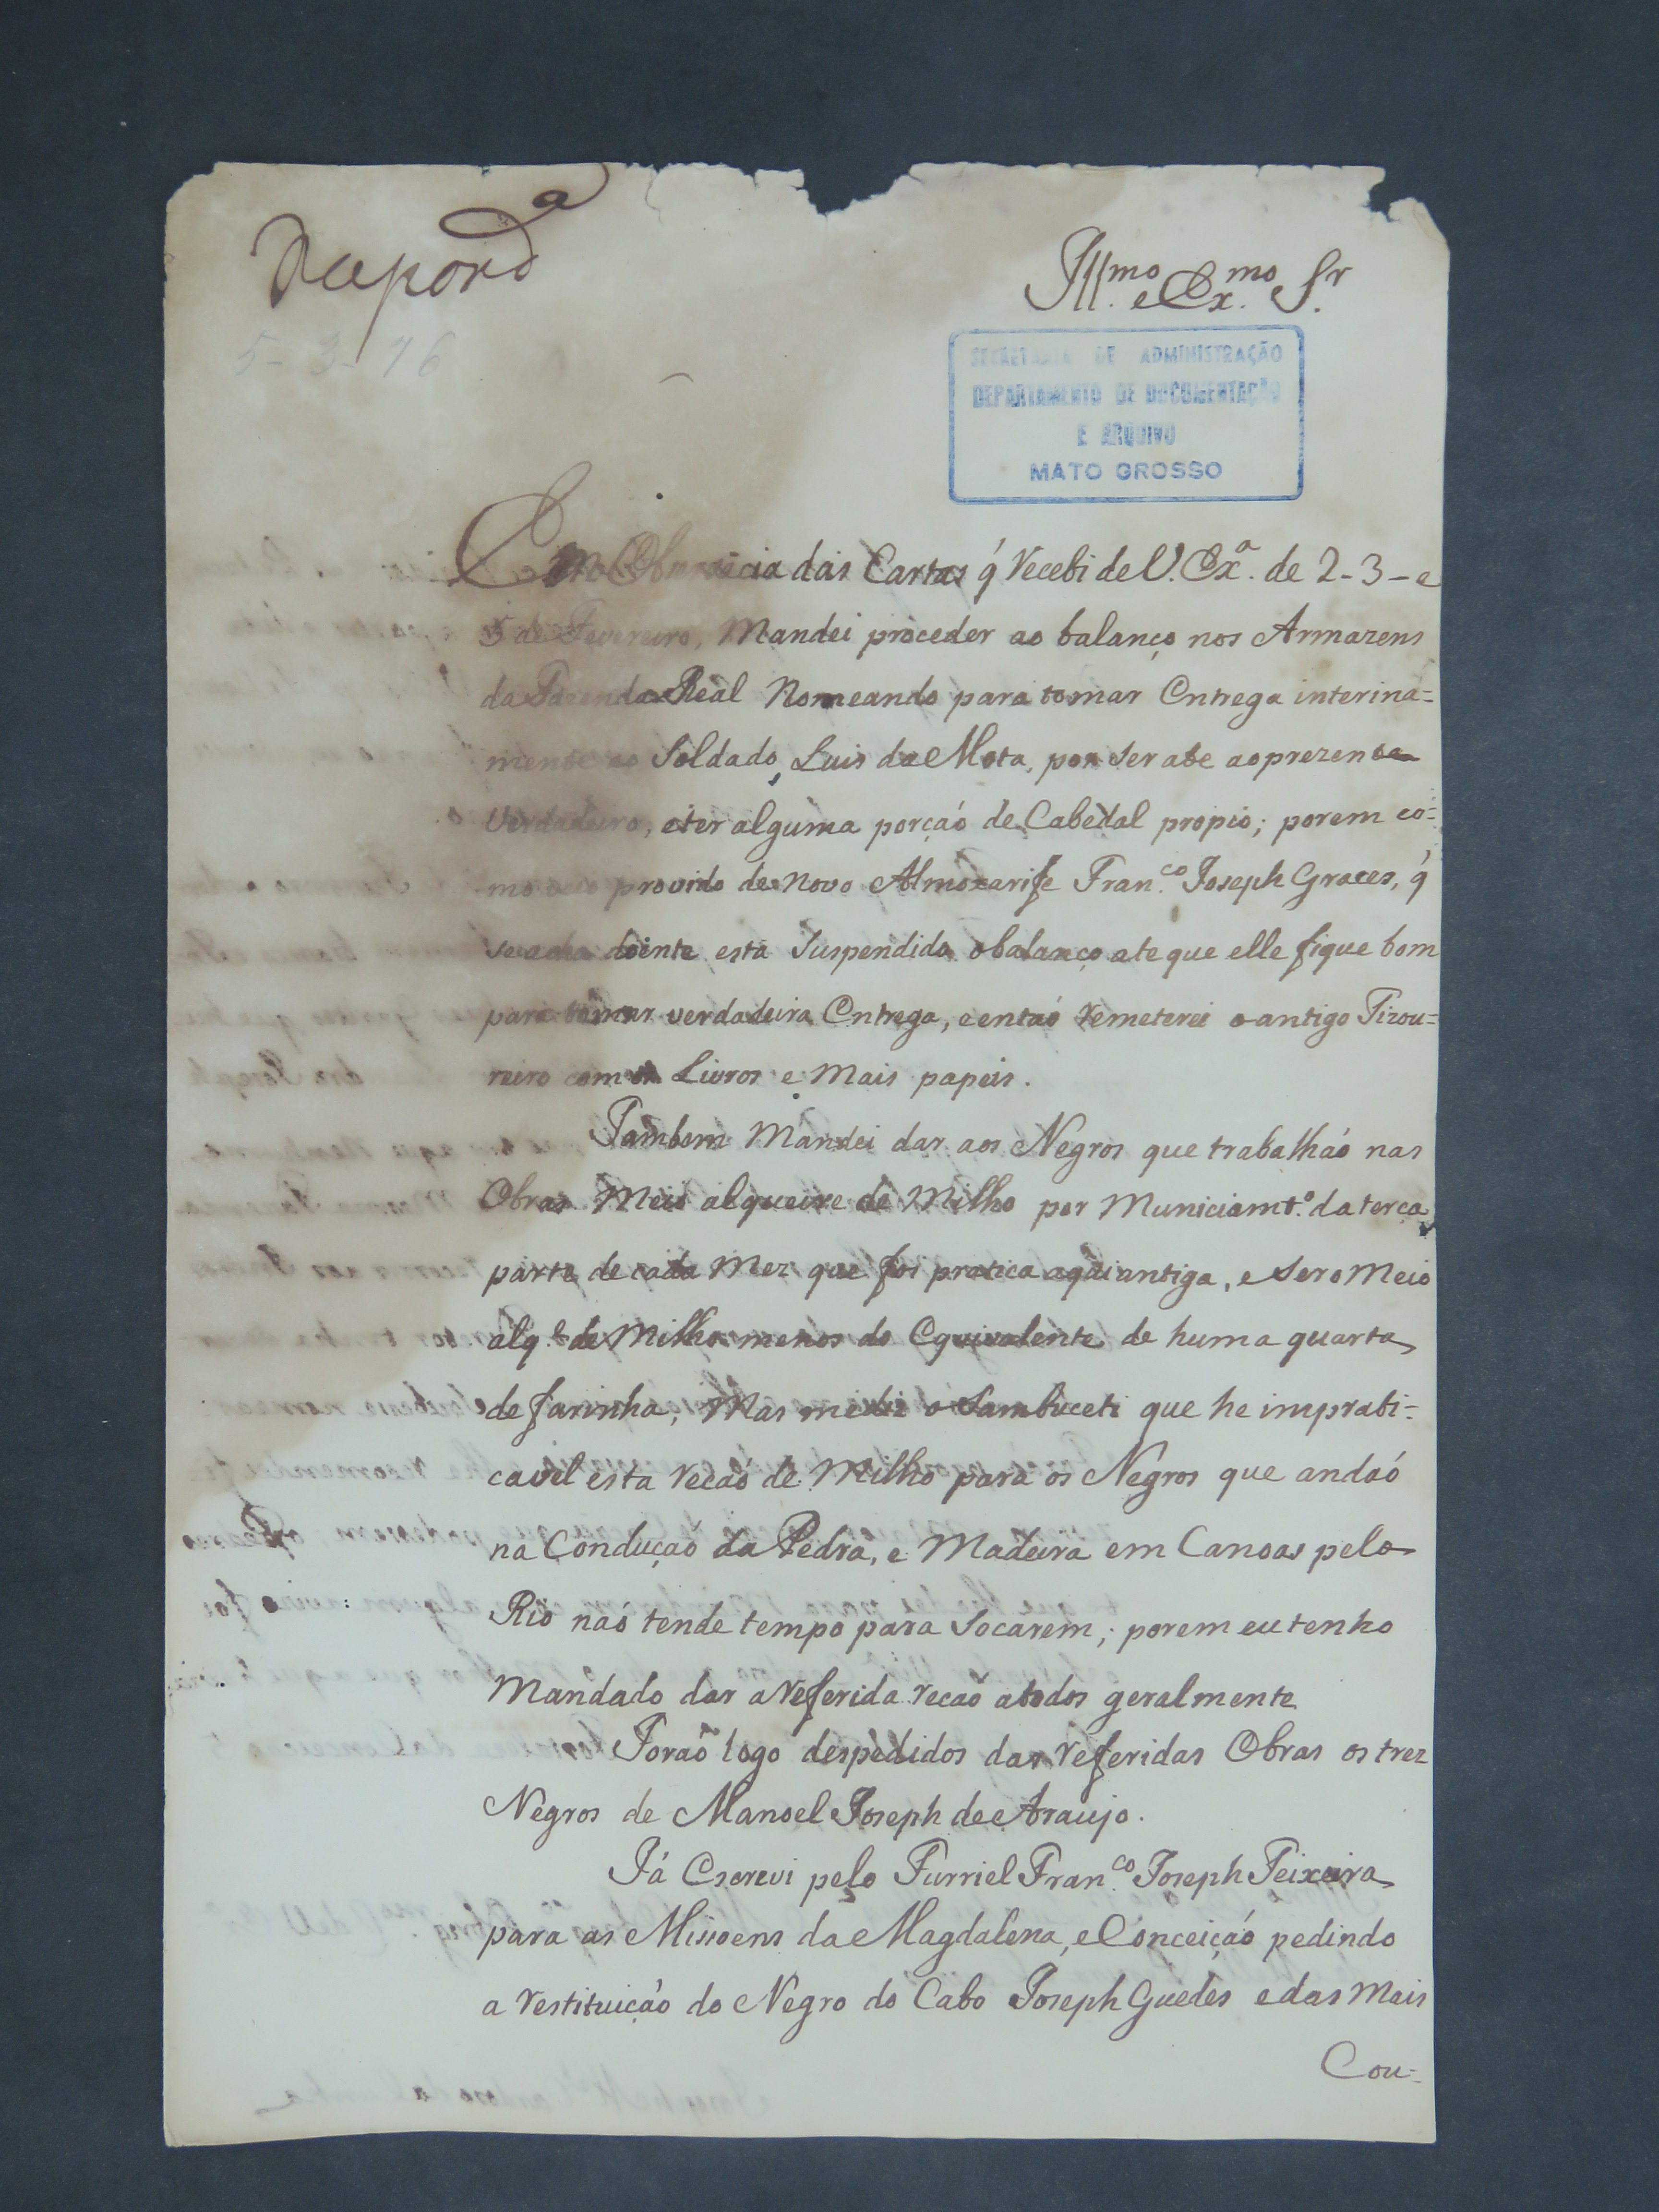 Respond.ª
5-3-76
Illmo. e Exmo. Sr.
SECRETARIA DE ADMINISTRAÇÃO
DEPARTAMENTO DE DOCUMENTAÇÃO
E ARQUIVO
MATO GROSSO
Em das Cartas q̃ recebi de V. Exª. de 2-3-e
5 de Fevereiro, Mandei proceder ao balanço nos Armazens
da Fazenda Real Nomeando para tomar Entrega interina=
mente ao Soldado, Luis da Mota, por ser ate ao prezente
Verdadeiro, e ter alguma porçaó de Cabedal propio; porem co=
mo provido de Novo Almoxarife Fran.co Joseph Graces, q̃
se acha doente esta Suspendido o balanço ate que elle fique bom
para tomar verdadeira Entrega, e entaó remeterei o antigo Tizou=
reiro com os Livros e Mais papeis.
Tambem Mandei dar aos Negros que trabalháo nas
Obras Meio alqueire de Milho por Municiamt.º da terça
parte de cada Mez que foi pratica aqui antiga, e ser o Meio
alq.e de Milho menos do Equivalente de huma quarta
de farinha; Mas mediz o Sambuceti que he imprati=
cavel esta recaó de Milho para os Negros que andaó
na Conduçaó da Pedra, e Madeira em Canoas pelo
Rio naó tende tempo para Socarem; porem eu tenho
Mandado dar a referida recaó atodos geralmente
Foraó logo despedidos das referidas Obras os trez
Negros de Manoel Joseph de Araujo.
Já Escrevi pelo Furriel Fran.co Joseph Teixeira
para as Missoens da Magdalena, e Conceiçáo pedindo
a restituiçáo do Negro do Cabo Joseph Guedes e das Mais
Cou=